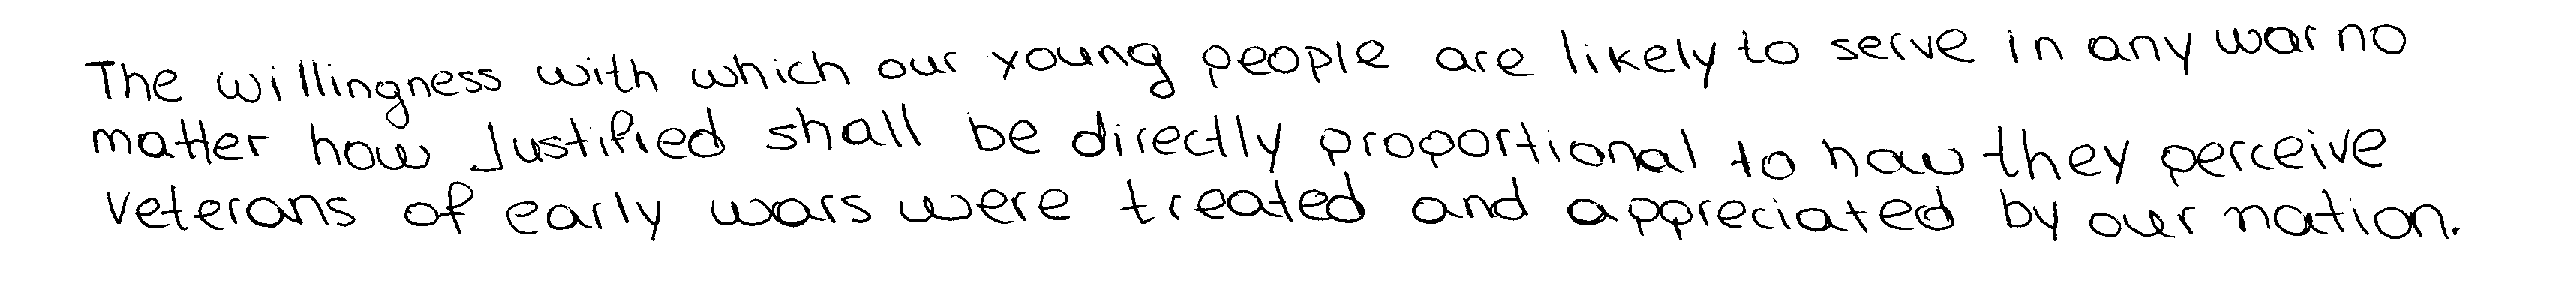 The willingness with which our young people are likely to serve in any war no
matter how Justified shall be directly proportional to how they perceive
veterans of early wars were treated and appreciated by our nation.